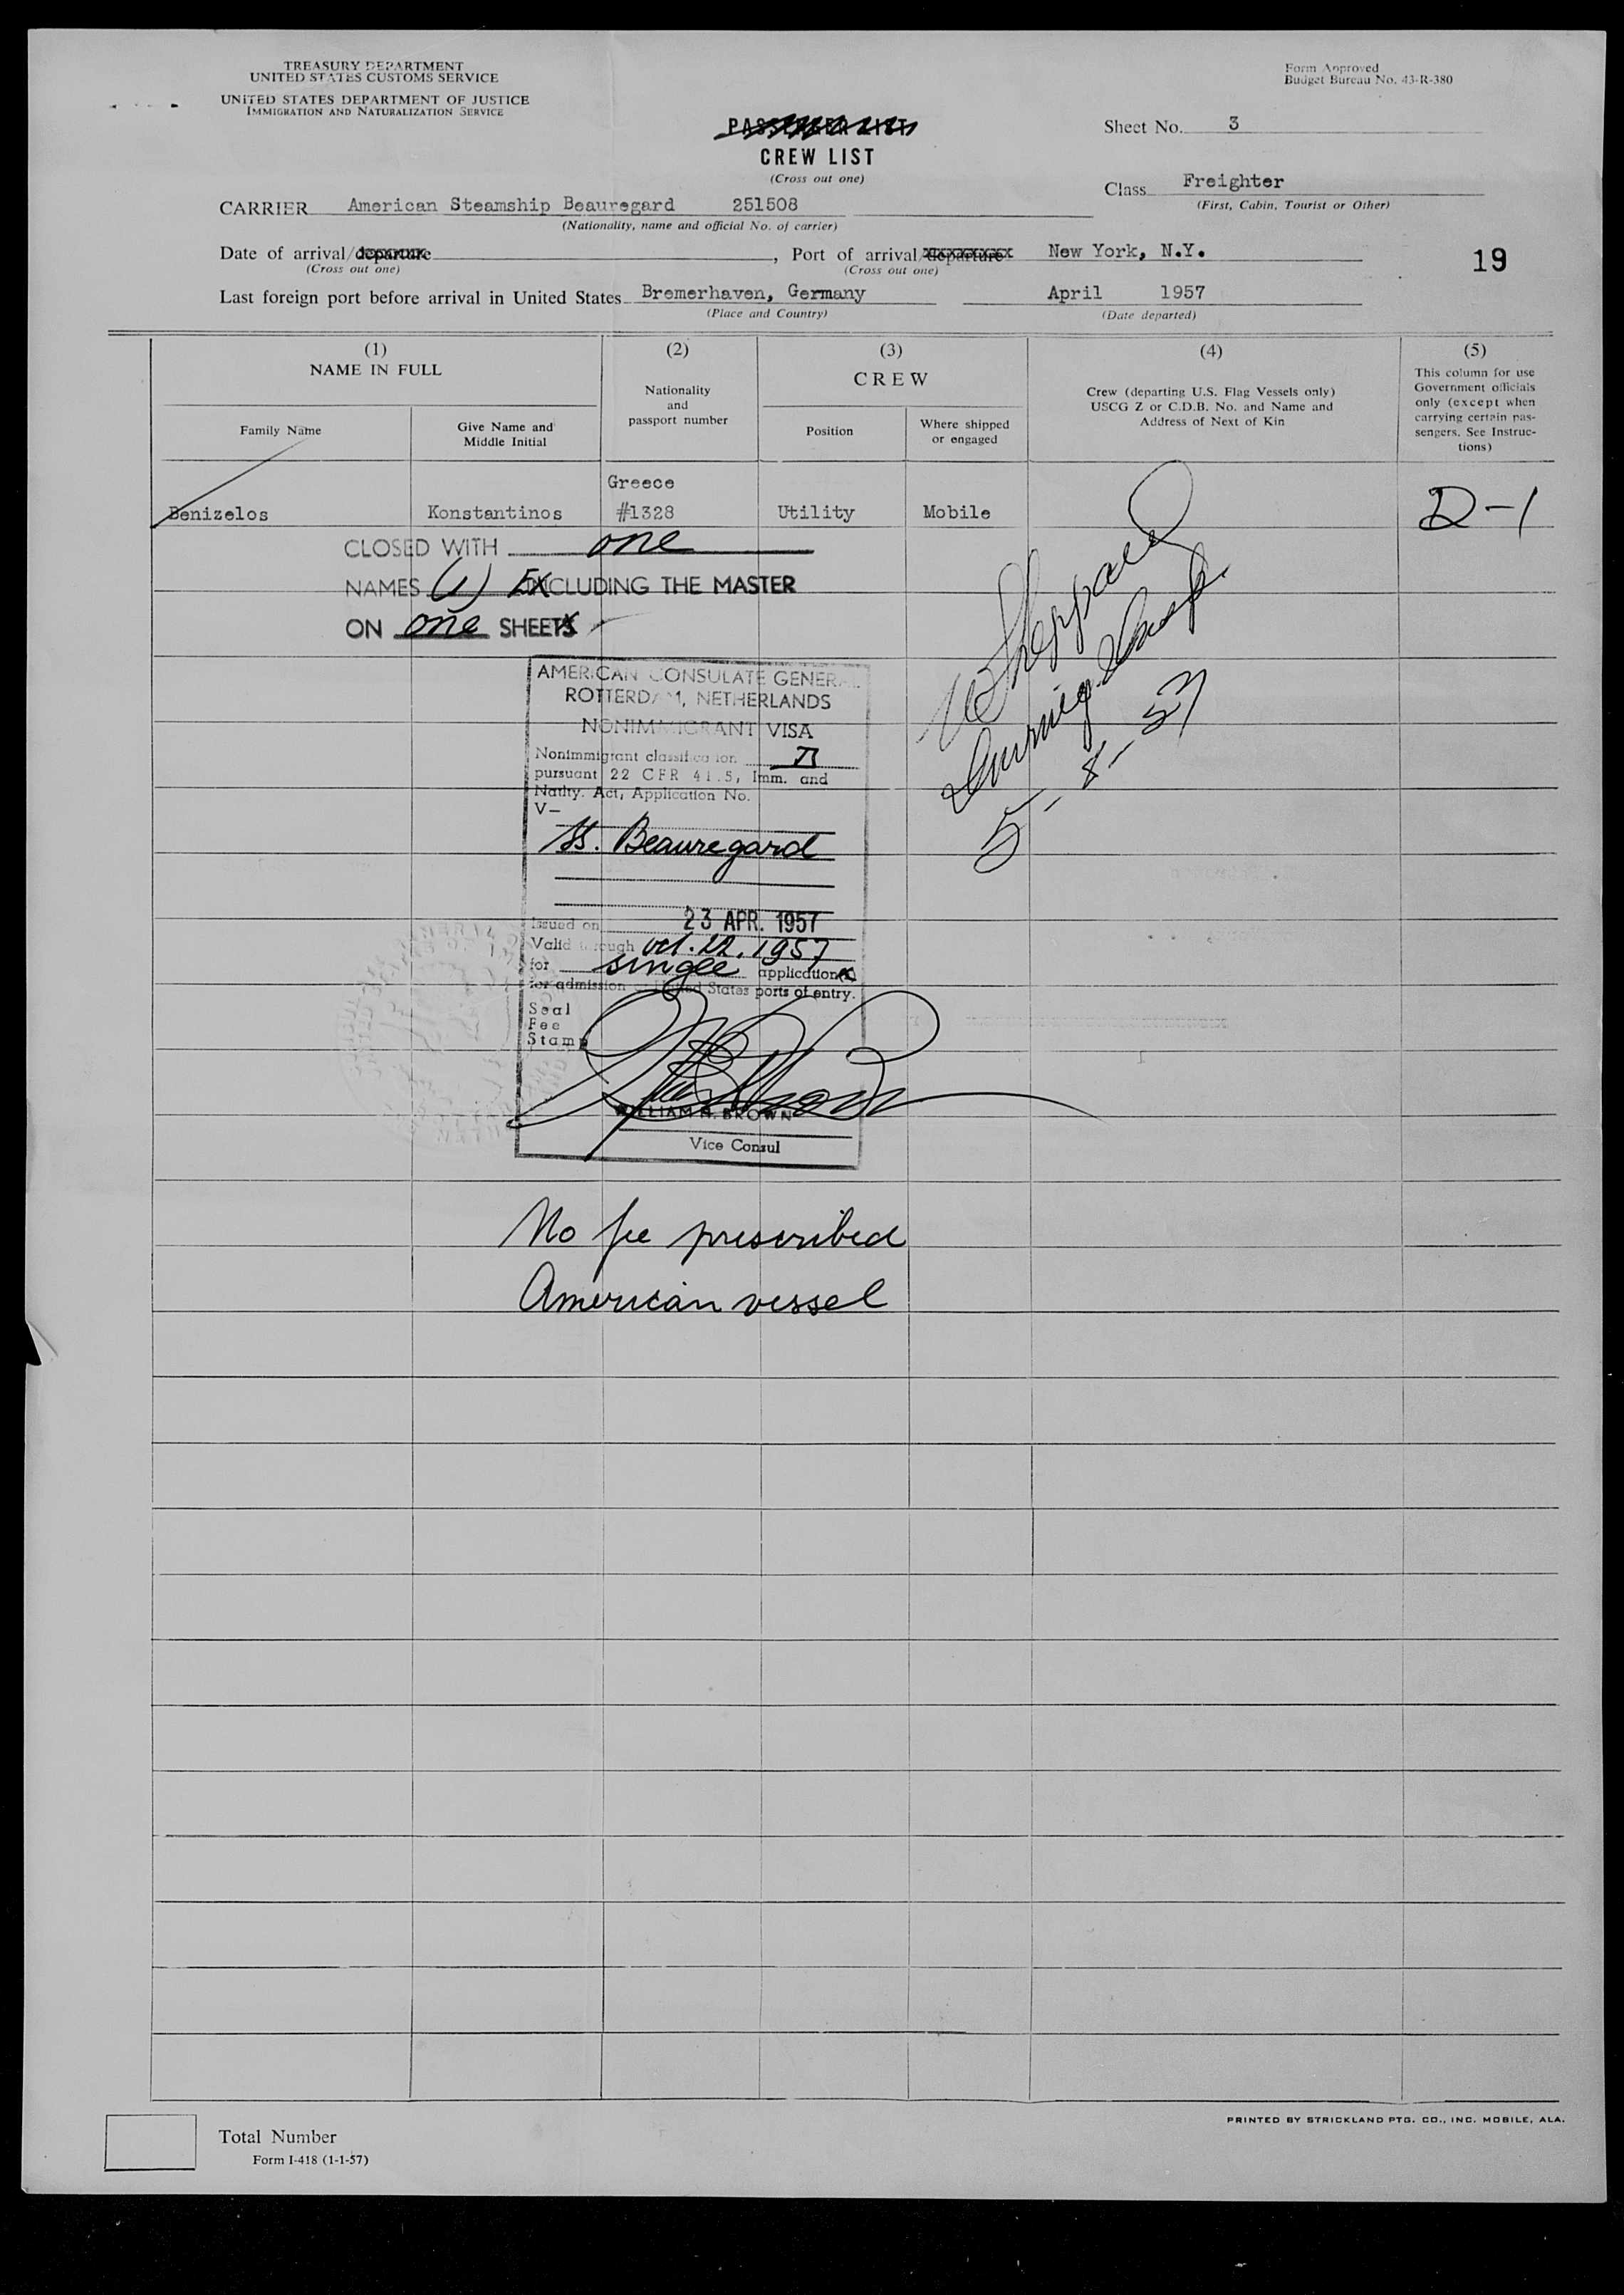 TREASURY DEPARTMENT
UNITED STATES CUSTOMS SERVICE
UNITED STATES DEPARTMENT OF JUSTICE
IMMIGRATION AND NATURALIZATION SERVICE
Form Approved
Budget Bureau No. 43-R-380
PASSENGER LIST
CREW LIST
(Cross out one)
Sheet No. 3
Class Freighter
(First, Cabin, Tourist or Other)
CARRIER American Steamship Beauregard 251508
(Nationality, name and official No. of carrier)
Date of arrival/departure , Port of arrival/departure New York, N.Y.
(Cross out one) (Cross out one)
19
Last foreign port before arrival in United States Bremerhaven, Germany April 1957
(Place and Country) (Date departed)
(1) (2) (3) (4) (5)
NAME IN FULL
Family Name
Give Name and
Middle Initial
Nationality
and
passport number
CREW
Position
Where shipped
or engaged
Crew (departing U.S. Flag Vessels only)
USCG Z or C.D.B. No. and Name and
Address of Next of Kin
This column for use
Government officials
only (except when
carrying certain pas-
sengers. See Instruc-
tions)
Greece
Benizelos Konstantinos #1328 Utility Mobile D-1
CLOSED WITH one
NAMES (1) EXCLUDING THE MASTER
ON one SHEETS
Sheppard
5-8-57
AMERICAN CONSULATE GENERAL
ROTTERDAM, NETHERLANDS
NONIMMIGRANT VISA
Nonimmigrant classification D
pursuant 22 CFR 41.5, Imm. and
Natlty. Act, Application No.
V-
SS. Beauregard
Issued on 23 APR. 1957
Valid through Oct. 22, 1957
for single applications
for admission at United States ports of entry.
Seal
Fee
Stamp
WILLIAM H. BROWN
Vice Consul
No fee prescribed
American vessel
PRINTED BY STRICKLAND PTG. CO., INC. MOBILE, ALA.
Total Number
Form I-418 (1-1-57)